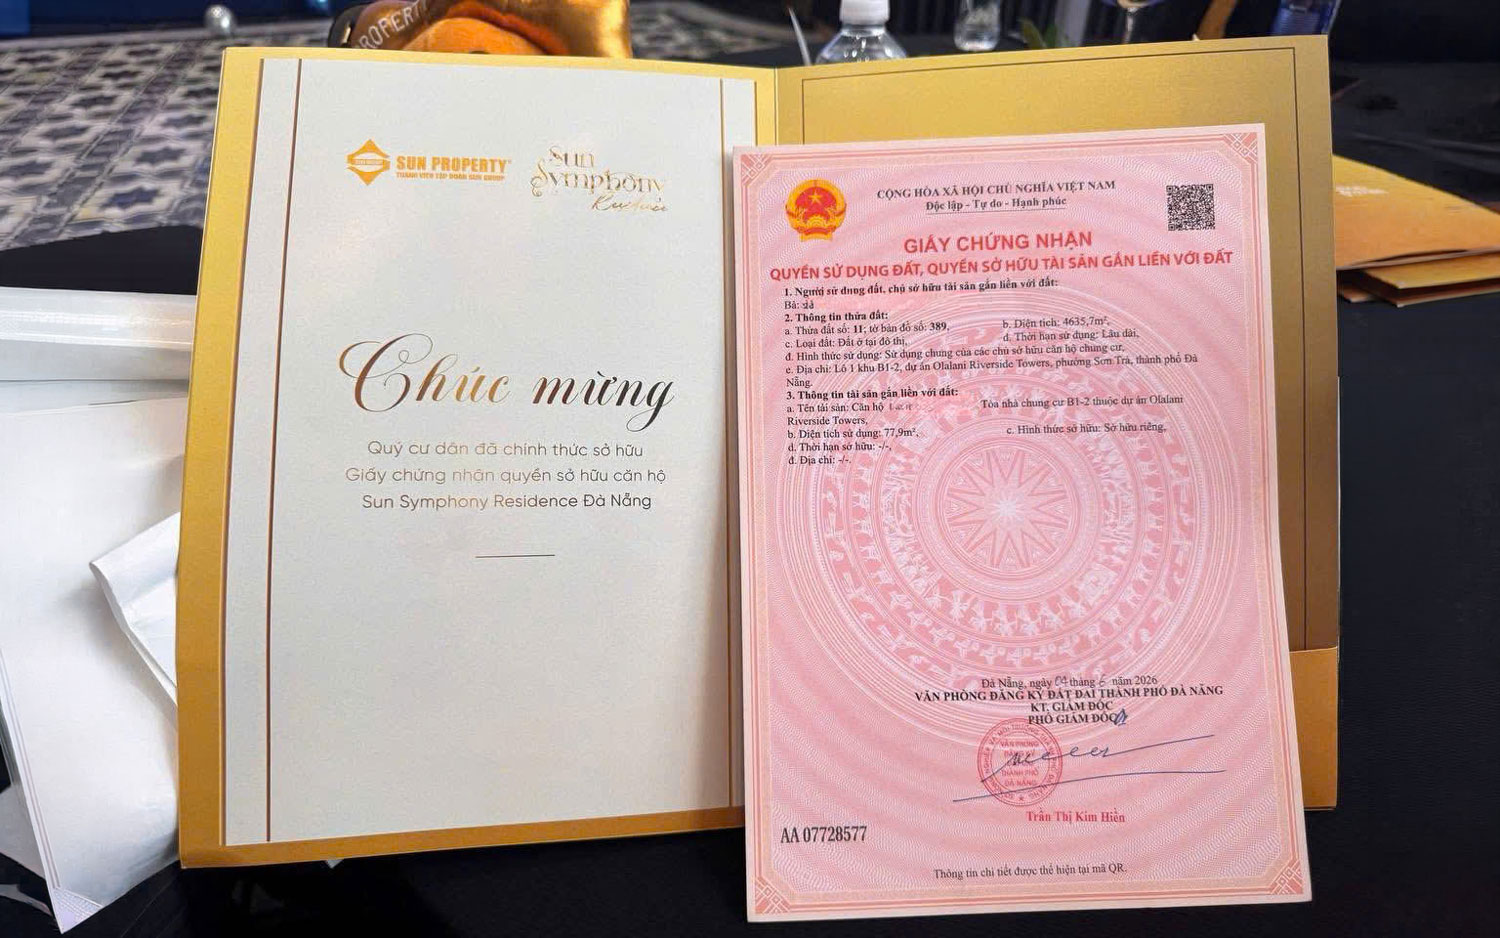 PROPERTY
SUN PROPERTY
THÀNH VIÊN TẬP ĐOÀN SUN GROUP
Sun
Symphony
Chúc mừng
Quý cư dân đã chính thức sở hữu
Giấy chứng nhận quyền sở hữu căn hộ
Sun Symphony Residence Đà Nẵng
CỘNG HÒA XÃ HỘI CHỦ NGHĨA VIỆT NAM
Độc lập - Tự do - Hạnh phúc
GIẤY CHỨNG NHẬN
QUYỀN SỬ DỤNG ĐẤT, QUYỀN SỞ HỮU TÀI SẢN GẮN LIỀN VỚI ĐẤT
1. Người sử dụng đất, chủ sở hữu tài sản gắn liền với đất:
Bà:
2. Thông tin thửa đất:
a. Thửa đất số: 11; tờ bản đồ số: 389, b. Diện tích: 4635,7m²,
c. Loại đất: Đất ở tại đô thị, d. Thời hạn sử dụng: Lâu dài,
đ. Hình thức sử dụng: Sử dụng chung của các chủ sở hữu căn hộ chung cư,
e. Địa chỉ: Lô 1 khu B1-2, dự án Olalani Riverside Towers, phường Sơn Trà, thành phố Đà
Nẵng.
3. Thông tin tài sản gắn liền với đất:
a. Tên tài sản: Căn hộ Tòa nhà chung cư B1-2 thuộc dự án Olalani
Riverside Towers,
b. Diện tích sử dụng: 77,9m², c. Hình thức sở hữu: Sở hữu riêng,
d. Thời hạn sở hữu: -/-,
đ. Địa chỉ: -/-.
Đà Nẵng, ngày 04 tháng 6 năm 2026
VĂN PHÒNG ĐĂNG KÝ ĐẤT ĐAI THÀNH PHỐ ĐÀ NẴNG
KT. GIÁM ĐỐC
PHÓ GIÁM ĐỐC
VĂN PHÒNG
ĐĂNG KÝ
THÀNH PHỐ
ĐÀ NẴNG
Trần Thị Kim Hiền
AA 07728577
Thông tin chi tiết được thể hiện tại mã QR.